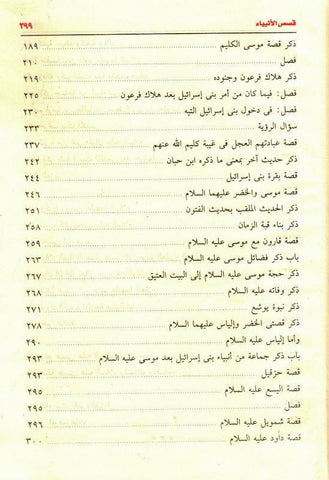 قصص الأنبياء ٣٩٩
ذكر قصة موسى الكليم ١٨٩
فصل ٢١٠
ذكر هلاك فرعون وجنوده ٢١٩
فصل: فيما كان من أمر بنى إسرائيل بعد هلاك فرعون ٢٢٥
فصل: فى دخول بنى إسرائيل التيه ٢٣٠
سؤال الرؤية ٢٣٣
قصة عبادتهم العجل فى غيبة كليم الله عنهم ٢٣٧
ذكر حديث آخر بمعنى ما ذكره ابن حبان ٢٤٢
قصة بقرة بنى إسرائيل ٢٤٤
قصة موسى والخضر عليهما السلام ٢٤٦
ذكر الحديث الملقب بحديث الفتون ٢٥١
ذكر بناء قبة الزمان ٢٥٨
قصة قارون مع موسى عليه السلام ٢٥٩
باب ذكر فضائل موسى عليه السلام ٢٦٣
ذكر حجة موسى عليه السلام إلى البيت العتيق ٢٦٧
ذكر وفاته عليه السلام ٢٦٨
ذكر نبوة يوشع ٢٧١
ذكر قصتى الخضر وإلياس عليهما السلام ٢٧٨
وأما إلياس عليه السلام ٢٩٠
باب ذكر جماعة من أنبياء بنى إسرائيل بعد موسى عليه السلام ٢٩٣
قصة حزقيل ٢٩٣
قصة اليسع عليه السلام ٢٩٥
فصل ٢٩٥
قصة شمويل عليه السلام ٢٩٦
قصة داود عليه السلام ٣٠٠